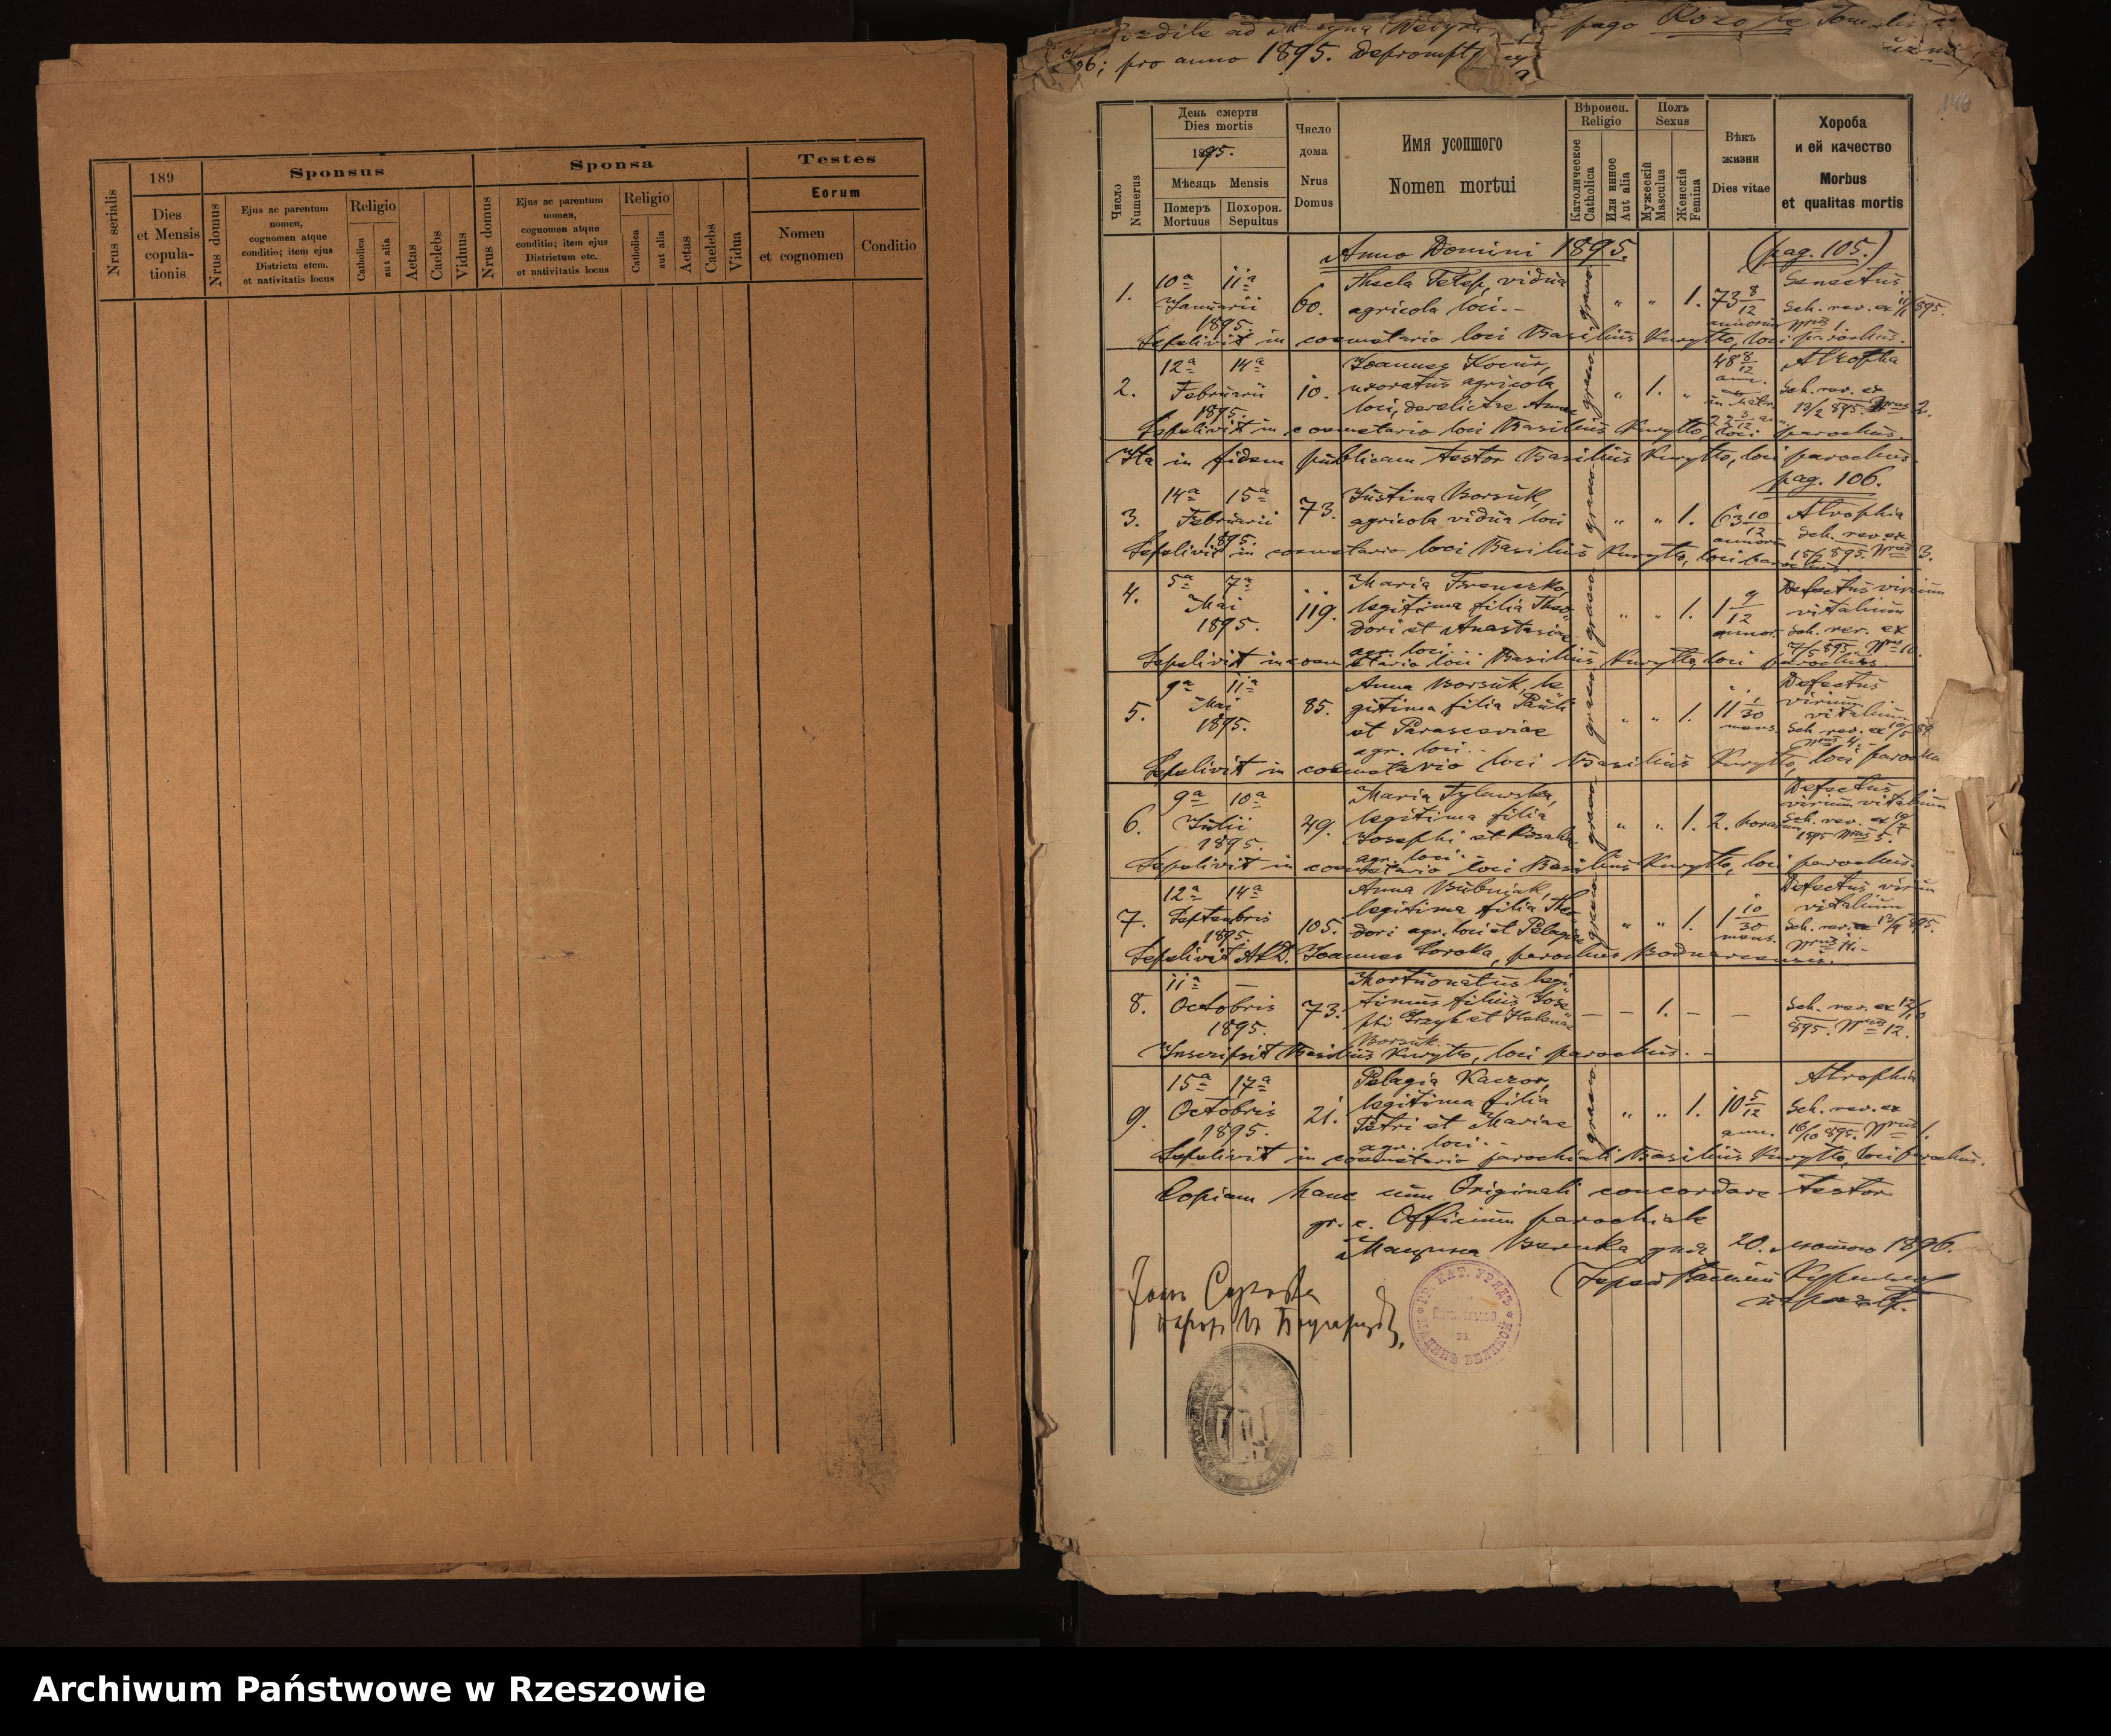 Nrus serialis
189
Dies
et Mensis
copula-
tionis
Sponsus
Nrus domus
Ejus ac parentum
nomen,
cognomen atque
conditio; item ejus
Districtu etcm.
et nativitatis locus
Religio
Catholica
aut alia
Aetas
Caelebs
Vidus
Sponsa
Nrus domus
Ejus ac parentum
nomen,
cognomen atque
conditio; item ejus
Districtum etc.
et nativitatis locus
Religio
Catholica
aut alia
Aetas
Caelebs
Vidua
Testes
Eorum
Nomen
et cognomen
Conditio
pago
pro anno 1895.
146
Число
Numerus
День смерти
Dies mortis
1895.
Мѣсяць Mensis
Померъ
Mortuus
Похорон.
Sepultus
Число
дома
Nrus
Domus
Имя усопшого
Nomen mortui
Вѣроисп.
Religio
Католическое
Catholica
Или инное
Aut alia
Полъ
Sexus
Мужескій
Masculus
Женскій
Femina
Вѣкъ
жизни
Dies vitae
Хороба
и ей качество
Morbus
et qualitas mortis
Anno Domini 1895. (pag. 105.)
1. 10ª 11ª Januarii 1895. 60. Thecla Telep, vidua
agricola loci.- graeco " " 1. 73 8/12 annorum Senectus
Sch. rev. ex 11/1 895. Nrus 1.
Sepelivit in coemetario loci Basilius Kuryłło, loci parochus.
2. 12ª 14ª Februarii 1895. 10. Joannes Kocur,
uxoratus agricola
loci, derelictae Annae graeco " 1. " 48 8/12 ann.
in Matr. 22 3/12 an. Atropha
Sch. rev. ex
13/2 895. Nrus 2.
Sepelivit in coemetario loci Basilius Kuryłło, loci parochus.
Ita in fidem publicam testor Basilius Kuryłło, loci parochus.
pag. 106.
3. 14ª 15ª Februarii 1895. 73. Justina Borsuk,
agricola vidua loci graeco " " 1. 63 10/12 annorum Atrophia
Sch. rev. ex
15/2 895. Nrus 3.
Sepelivit in coemetario loci Basilius Kuryłło, loci parochus.
4. 5ª 7ª Mai 1895. 119. Maria Frenczko,
legitima filia Theo-
dori et Anastasiae
agr. loci graeco " " 1. 1 9/12 annor. Defectus virium
vitalium
Sch. rev. ex
7/5 895. Nrus
Sepelivit in coemetario loci Basilius Kuryłło, loci parochus.
5. 9ª 11ª Mai 1895. 85. Anna Borsuk, le-
gitima filia Pauli
et Parasceviae
agr. loci.- graeco " " 1. 11 1/30 mens. Defectus
virium
vitalium
Sch. rev. ex 10/5 89
Nrus 4.
Sepelivit in coemetario loci Basilius Kuryłło, loci parochus
6. 9ª 10ª Julii 1895. 49. Maria Tylawska,
legitima filia
Josephi et Rosaliae
agr. loci.- graeco " " 1. 2. horarum Defectus
virium vitalium
Sch. rev. ex 10/7
1895 Nrus 5.
Sepelivit in coemetario loci Basilius Kuryłło, loci parochus.
7. 12ª 14ª Septembris 1895. 105. Anna Bubniak,
legitima filia Theo-
dori agr. loci et Pelagiae graeco " " 1. 1 10/30 mens. Defectus virium
vitalium
Sch. rev. ex 13/9 895.
Nrus 11.-
Sepelivit Joannes Soroka, parochus Bodnarcensis.
8. 11ª — Octobris 1895. 73. Mortuonatus legi-
timus filius Jose-
phi Grzyb et Helenae
Borsuk.- — — 1. — — Sch. rev. ex 12/10
895. Nrus 12.
Inscripsit Basilius Kuryłło, loci parochus.-
9. 15ª 17ª Octobris 1895. 21. Pelagia Kaczor,
legitima filia
Petri et Mariae
agr. loci.- graeco " " 1. 10 5/12 ann. Atrophia
Sch. rev. ex
16/10 895. Nrus 1.
Sepelivit in coemetario parochiali Basilius Kuryłło, loci parochus.
Copiam hanc cum Originali concordare testor
gr. c. Officium parochiale
дня 20. лютого 1896.
Іоанъ Сорока
парохъ
ГР. КАТ. УРЯДЪ